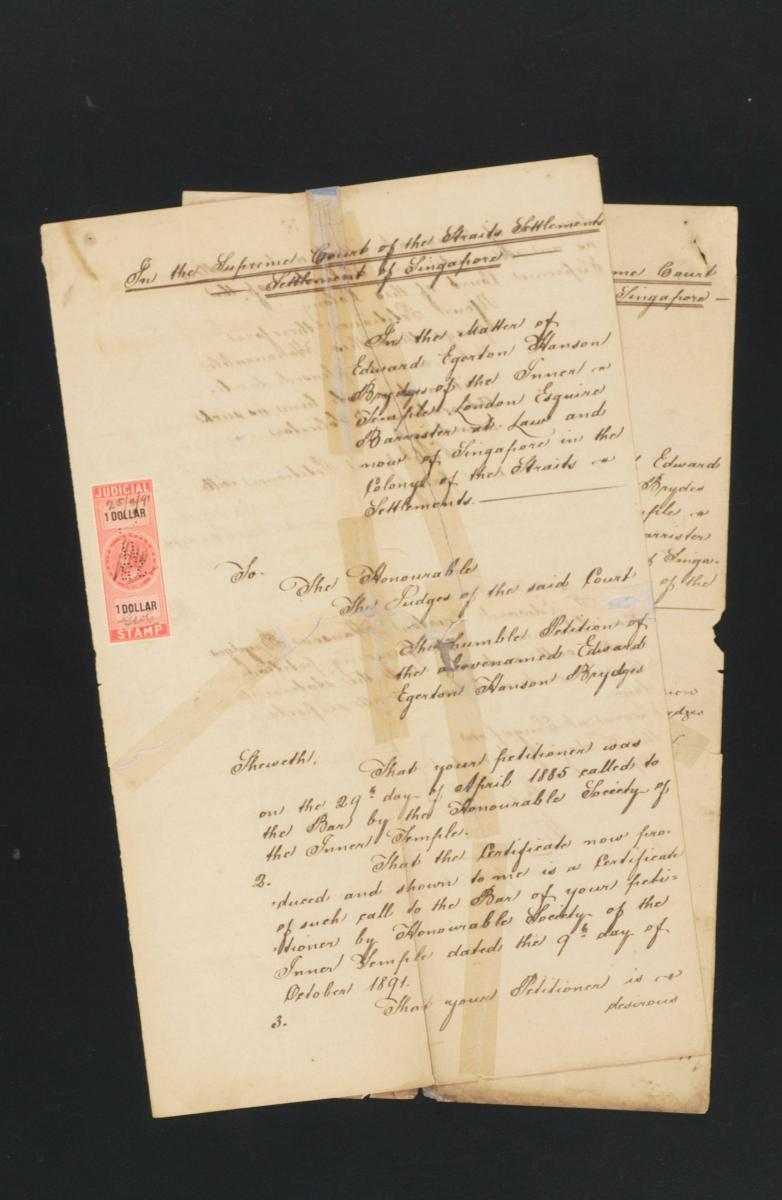 In the Supreme Court of the Straits Settlements
Settlement of Singapore
In the Matter of
Edward Egerton Hanson
Brydges of the Inner
Temple London Esquire
Barrister at Law and
now of Singapore in the
Colony of the Straits
Settlements.
JUDICIAL
25/11/91
1 DOLLAR
1 DOLLAR
STAMP
To The Honourable
The Judges of the said Court
The humble Petition of
the abovenamed Edward
Egerton Hanson Brydges
Sheweth.
That your petitioner was
on the 29th day of April 1885 called to
the Bar by the Honourable Society of
the Inner Temple.
2. That the Certificate now pro-
duced and shown to me is a Certificate
of such call to the Bar of your peti=
tioner by Honourable Society of the
Inner Temple dated the 9th day of
October 1891.
3. That your Petitioner is
desirous
me Court
Singapore
Edward
Brydges
mple
arrister
f Singa-
of the